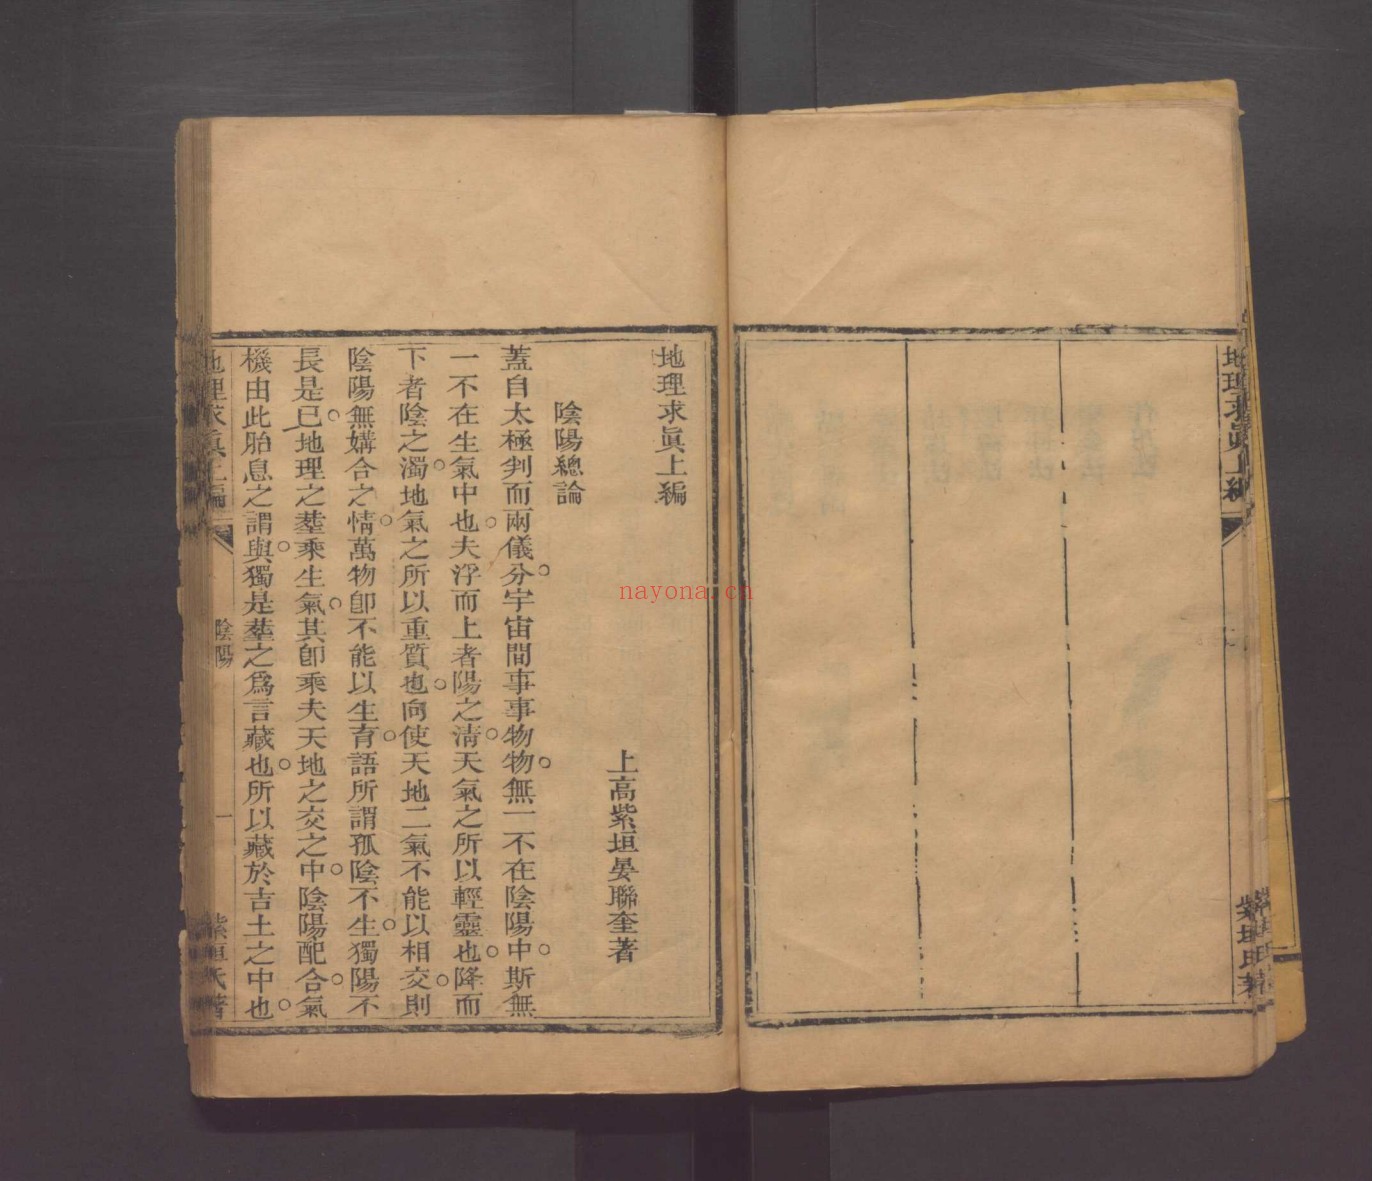 地理求眞上編
紫垣氏著
地理求眞上編
上高紫垣晏聯奎著
陰陽總論
蓋自太極判而兩儀分宇宙間事事物物無一不在陰陽中斯無
一不在生氣中也夫浮而上者陽之清天氣之所以輕靈也降而
下者陰之濁地氣之所以重質也向使天地二氣不能以相交則
陰陽無媾合之情萬物卽不能以生育語所謂孤陰不生獨陽不
長是已地理之葬乘生氣其卽乘夫天地之交之中陰陽配合氣
機由此胎息之謂與獨是葬之爲言藏也所以藏於吉土之中也
地理求眞上編
陰陽
一
紫垣氏著
nayona.cn